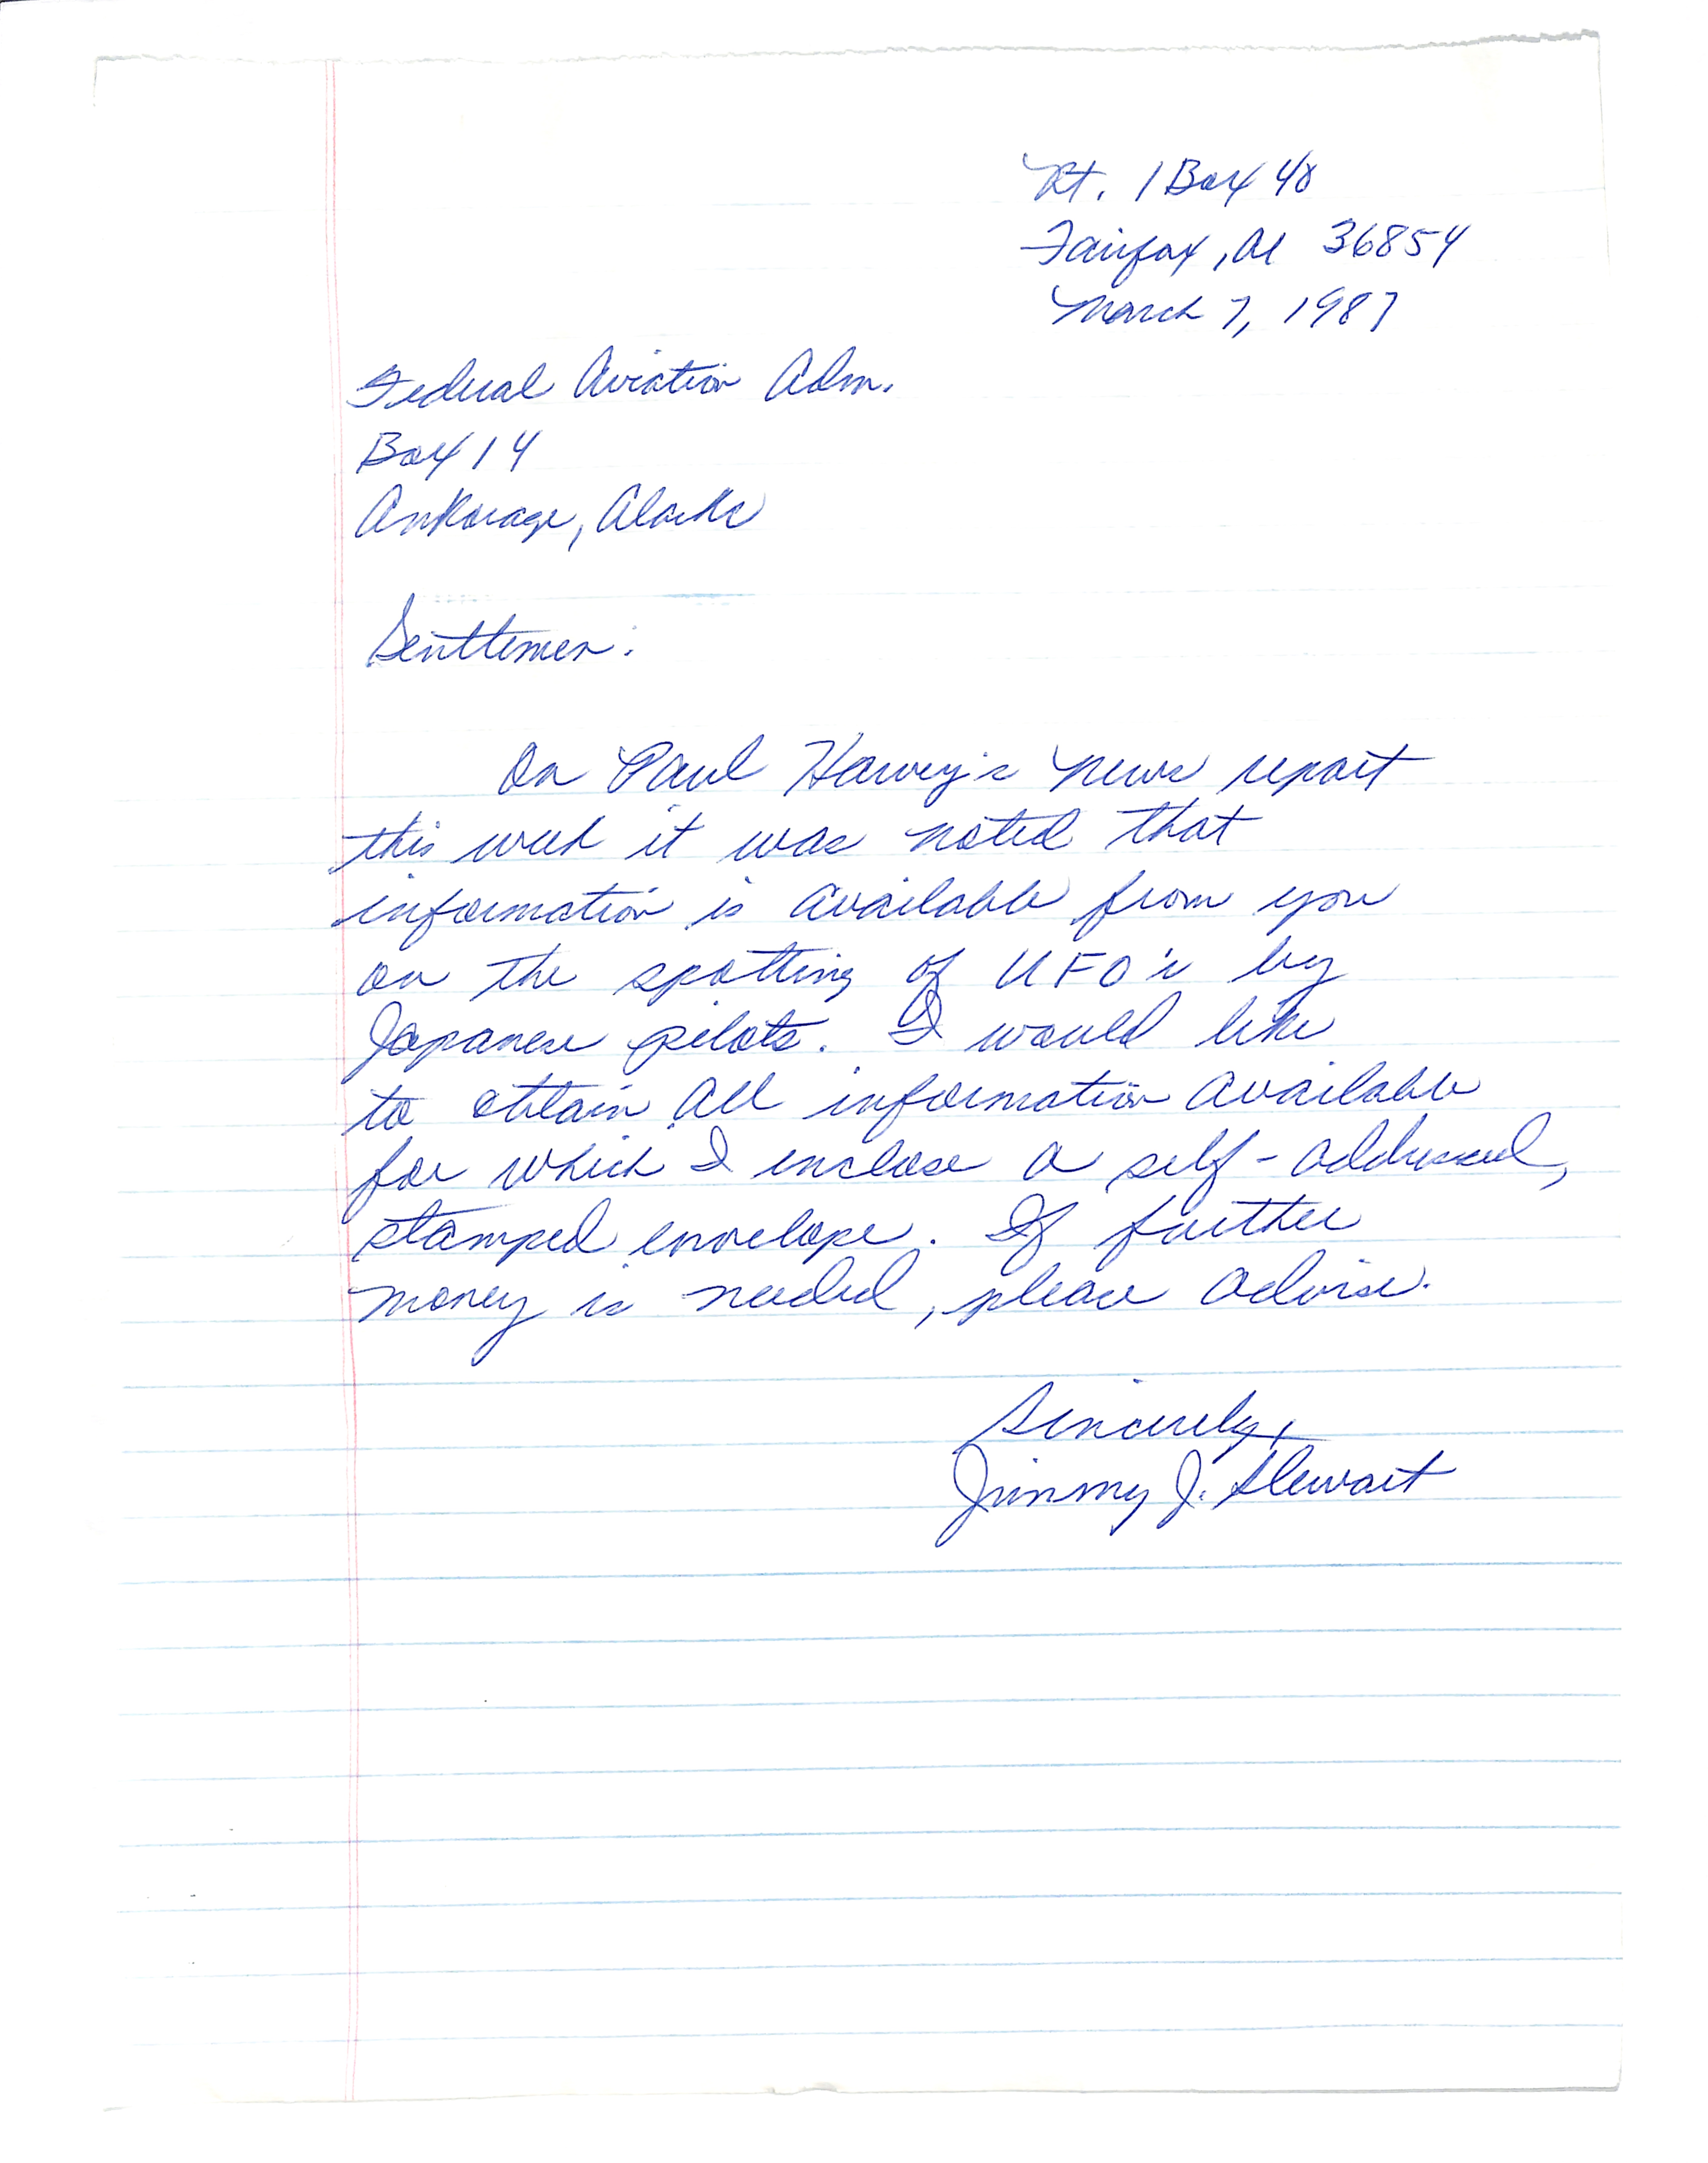 Rt. 1 Box 48
Fairfax, Al 36854
March 7, 1987
Federal Aviation Adm.
Box 14
Ankorage, Alaska
Gentlemen:
On Paul Harvey's news report
this week it was noted that
information is available from you
on the spotting of UFO's by
Japanese pilots. I would like
to obtain all information available
for which I inclose a self-addressed,
stamped envelope. If further
money is needed, please advise.
Sincerely,
Jimmy J. Stewart